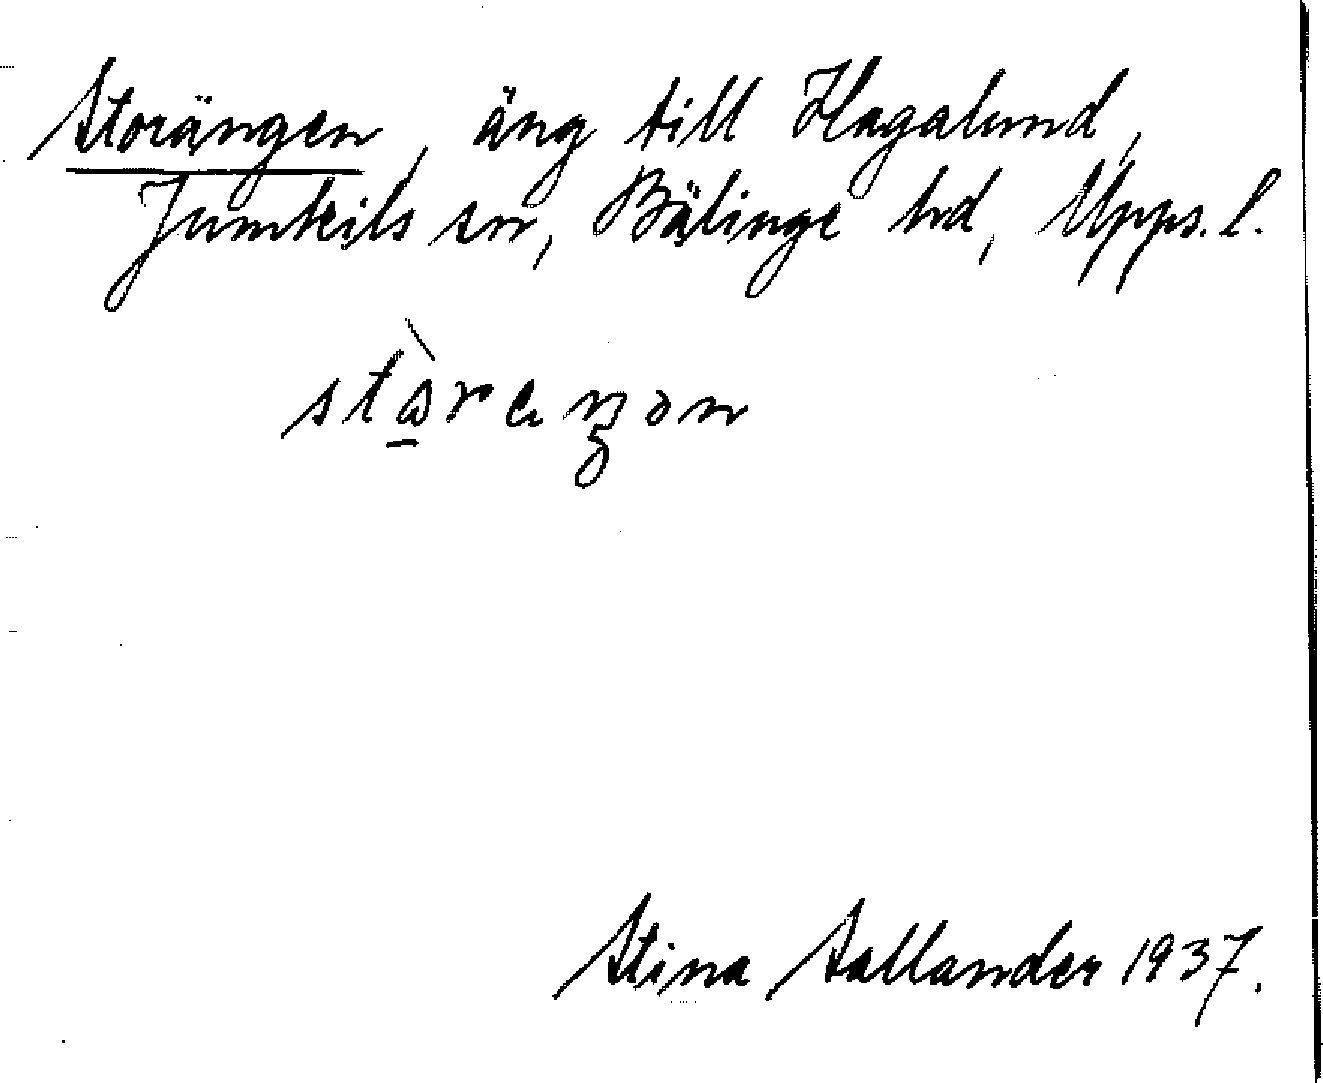 Storängen, äng till Hagalund,
Jumkils sn, Bälinge hd, Upps. l.
Stina Sallander 1937.